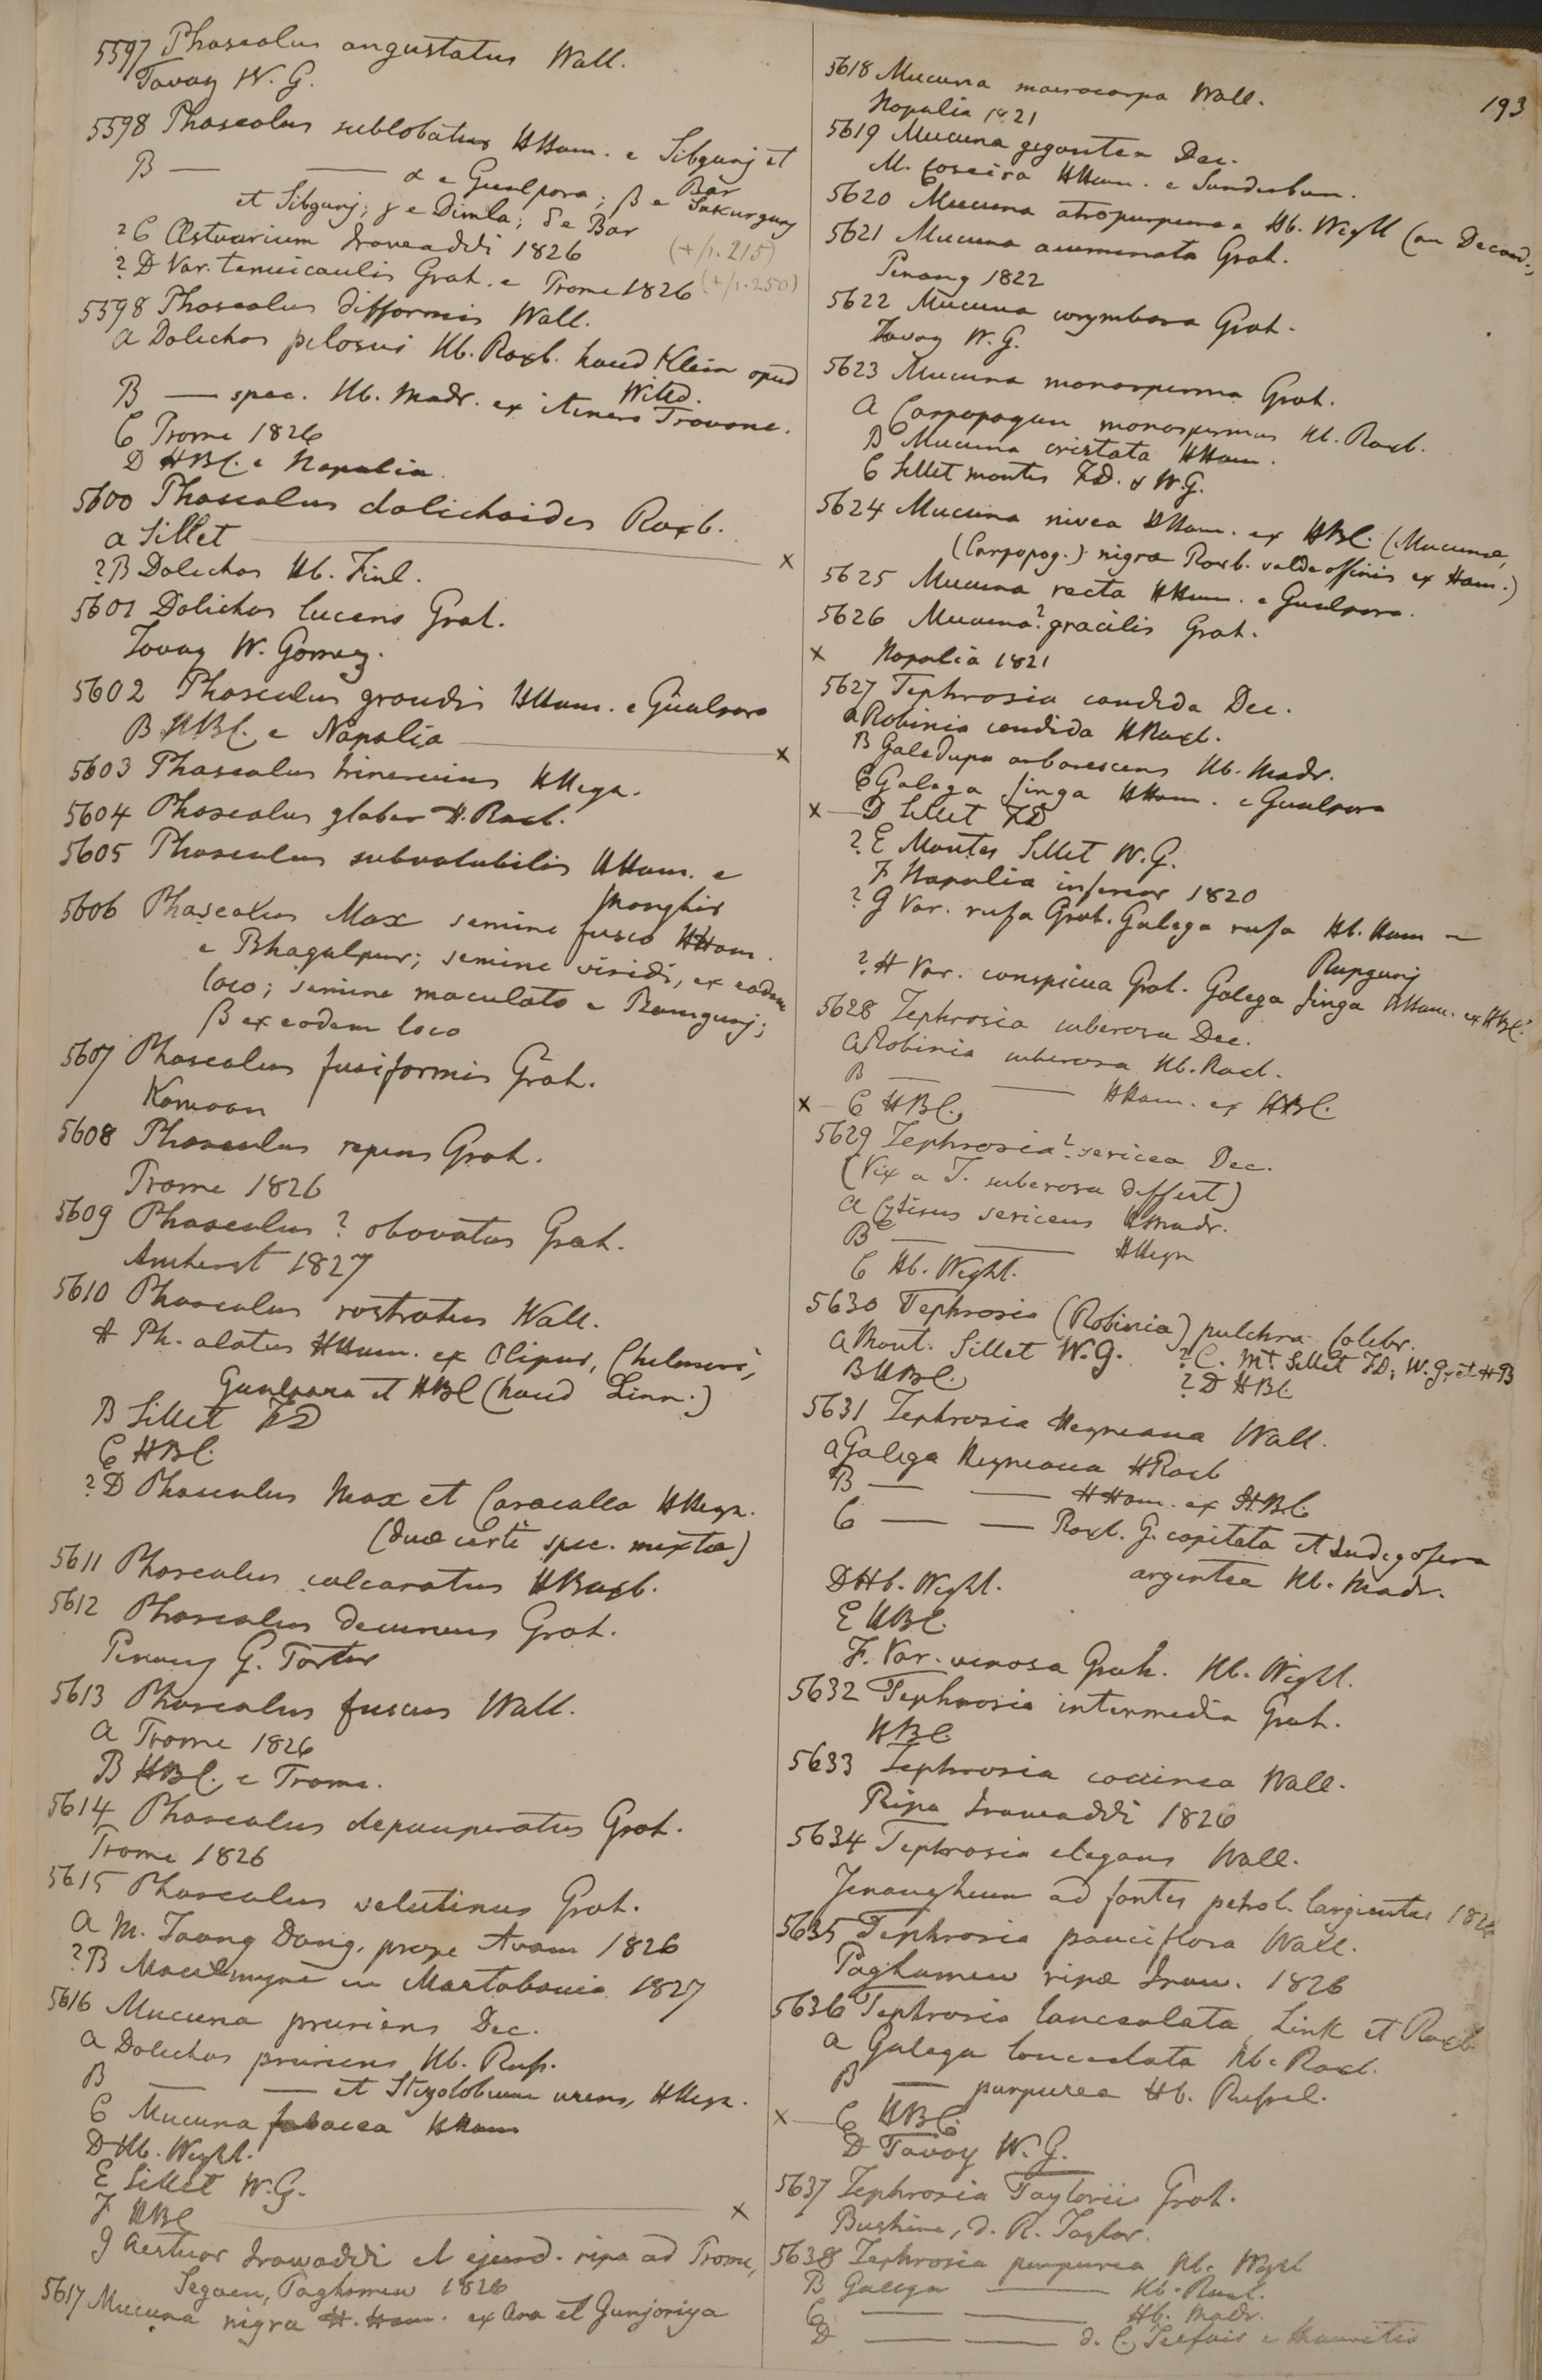 5597 Phaseolus angustatus Wall.
Tavoy W. G.
5598 Phaseolus sublobatus HHam. e Sibgunj et
B — — α e Gualpara; β e Bar
et Sibgunj; γ e Dimla; δ e Bar Sukurgunj
? C Æstuarium Irawaddi 1826 (+/p. 215)
? D Var. tenuicaulis Grah. e Prome 1826 (+/p. 250)
5598 Phaseolus difformis Wall.
A Dolichos pilosus Hb. Roxb. haud Klein apud
Willd.
B — spec. Hb. Madr. ex itinere Travanc.
C Prome 1826
D HBC. e Napalia
5600 Phaseolus dolichoides Roxb.
a Sillet — x
? B Dolichos Hb. Finl.
5601 Dolichos lucens Grah.
Tavoy W. Gomez.
5602 Phaseolus grandis HHam. e Gualpara
B HBC. e Napalia — x
5603 Phaseolus trinervius HHeyn.
5604 Phaseolus glaber H. Roxb.
5605 Phaseolus subvolubilis HHam. e
Monghir
5606 Phaseolus Max semine fusco HHam.
e Bhagulpur; semine viridi, ex eodem
loco; semine maculato e Ramgunj;
β ex eodem loco
5607 Phaseolus fusiformis Grah.
Kamoon
5608 Phaseolus repens Grah.
Prome 1826
5609 Phaseolus ? obovatus Grah.
Amherst 1827
5610 Phaseolus rostratus Wall.
A Ph. alatus HHam. ex Olipur, Chilmari,
Gualpara et HBC (haud Linn.)
B Sillet FD
C HBC.
? D Phaseolus Max et Caracalla HHeyn.
(duæ certè spec. mixtæ)
5611 Phaseolus calcaratus HRoxb.
5612 Phaseolus decurrens Grah.
Penang G. Porter
5613 Phaseolus fuscus Wall.
a Prome 1826
B HBC. e Prome.
5614 Phaseolus depauperatus Grah.
Prome 1826
5615 Phaseolus velutinus Grah.
a M. Taong Dong, prope Avam 1826
? B Moulmyne in Martabania 1827
5616 Mucuna pruriens Dec.
a Dolichos pruriens Hb. Russ.
B — — et Stizolobium urens, HHeyn.
C Mucuna fabacea HHam
D Hb. Wight.
E Sillet W. G.
F HBC — x
G Aestuar Irawaddi et ejusd. ripa ad Prome,
Segaen, Paghamew 1826
5617 Mucuna nigra H. Ham. ex Ava et Gunjoriya
193
5618 Mucuna macrocarpa Wall.
Napalia 1821
5619 Mucuna gigantea Dec.
M. Coseira HHam. e Sunderbun.
5620 Mucuna atropurpurea Hb. Wight (an Decand.,
5621 Mucuna acuminata Grah.
Penang 1822
5622 Mucuna corymbosa Grah.
Tavoy W. G.
5623 Mucuna monosperma Grah.
a Carpopogon monospermus Hb. Roxb.
B Mucuna cristata HHam.
C Sillet montes FD. & W.G.
5624 Mucuna nivea HHam. ex HBC. (Mucunæ,
(Carpopog.) nigra Roxb. valde affinis ex Ham.)
5625 Mucuna recta HHam. e Gualpara.
5626 Mucuna? gracilis Grah.
x Napalia 1821
5627 Tephrosia candida Dec.
a Robinia candida HRoxb.
B Galedupa arborescens Hb. Madr.
C Galega Singa HHam. e Gualpara
x — D Sillet FD
? E Montes Sillet W. G.
F Napalia inferior 1820
? G Var. rufa Grah. Galega rufa Hb. Ham e
Rupgunj
? H Var. conspicua Grah. Galega Singa HHam. ex HBC.
5628 Tephrosia suberosa Dec.
a Robinia suberosa Hb. Roxb.
B — — HHam. ex HBC.
x — C HBC.
5629 Tephrosia? sericea Dec.
(Vix a T. suberosa differt)
a Cytisus sericeus HMadr.
B — — HHeyn
C Hb. Wight.
5630 Tephrosia (Robinia) pulchra Colebr.
a Mont. Sillet W. G. ? C. Mt. Sillet FD; W. G, et HB
B HBC. ? D HBC.
5631 Tephrosia Heyneana Wall.
a Galega Heyneana HRoxb
B — — HHam. ex H.B.C.
C — — Roxb. G. capitata et Indigofera
argentea Hb. Madr.
D Hb. Wight.
E HBC.
F. Var. venosa Grah. Hb. Wight.
5632 Tephrosia intermedia Grah.
HBC
5633 Tephrosia coccinea Wall.
Ripa Irawaddi 1826
5634 Tephrosia elegans Wall.
Yenangheum ad fontes petrol. largientes 1826
5635 Tephrosia pauciflora Wall.
Paghamew ripæ Iraw. 1826
5636 Tephrosia lanceolata Link et Roxb
a Galega lanceolata Hb. Roxb.
B — purpurea Hb. Russel.
x — C HBC.
D Tavoy W. G.
5637 Tephrosia Taylorii Grah.
Bushire, D. R. Taylor.
5638 Tephrosia purpurea Hb. Wight
B Galega — Hb. Roxb.
C — — Hb. Madr.
D — — d. C. Telfair e Mauritio